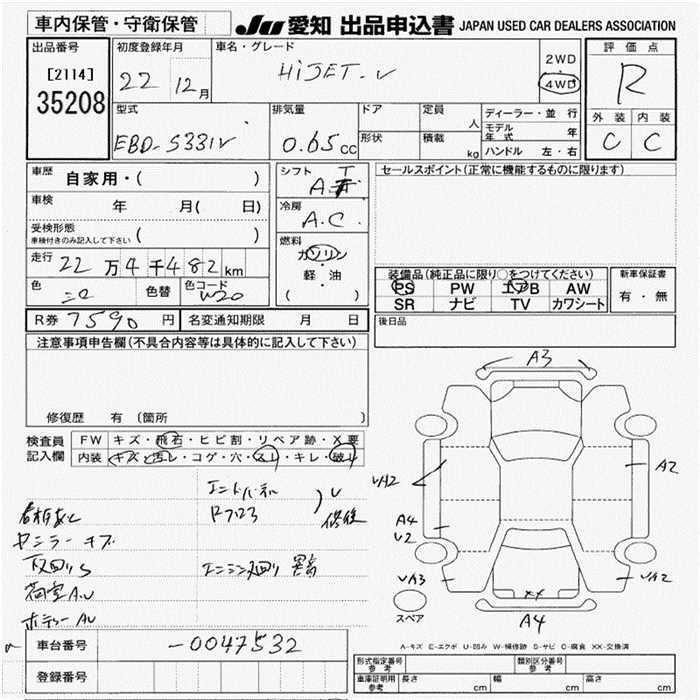 車内保管・守衛保管
JU 愛知 出品申込書 JAPAN USED CAR DEALERS ASSOCIATION
出品番号 初度登録年月 車名・グレード 2WD 評価点
[2114] 22 12月 HiJET-V 4WD R
35208 型式 排気量 ドア 定員 人 ディーラー・並行 外装 内装
EBD-S331V 0.65cc 形状 積載 kg モデル年式 年 C C
ハンドル 左・右
車歴 自家用・( ) シフト セールスポイント(正常に機能するものに限ります)
車検 年 月( 日) 冷房 A.C.
受検形態 車検付きのみ記入して下さい ( ) 燃料 ガソリン
走行 22万4千482km 軽・油 装備品(純正品に限り○をつけてください) 新車保証書
色 色替 色コード W20 ( ) PS PW エアB AW 有・無
SR ナビ TV カワシート
R券 7590円 名変通知期限 月 日 後日品
注意事項申告欄(不具合内容等は具体的に記入して下さい)
修復歴 有 (箇所 )
検査員 FW キズ・飛石・ヒビ割・リペア跡・X要
記入欄 内装 キズ・汚レ・コゲ・穴・スレ・キレ・破レ
A3
A2
A4
U2
A4
スペア
看板あと
下回りS
荷室A.U
ボディーAU
車台番号 -0047532
登録番号
A-キズ E-エクボ U-凹み W-補修跡 S-サビ C-腐食 XX-交換済
形式指定番号 参考 類別区分番号 参考
車庫証明用 参考 長さ cm 幅 cm 高さ cm